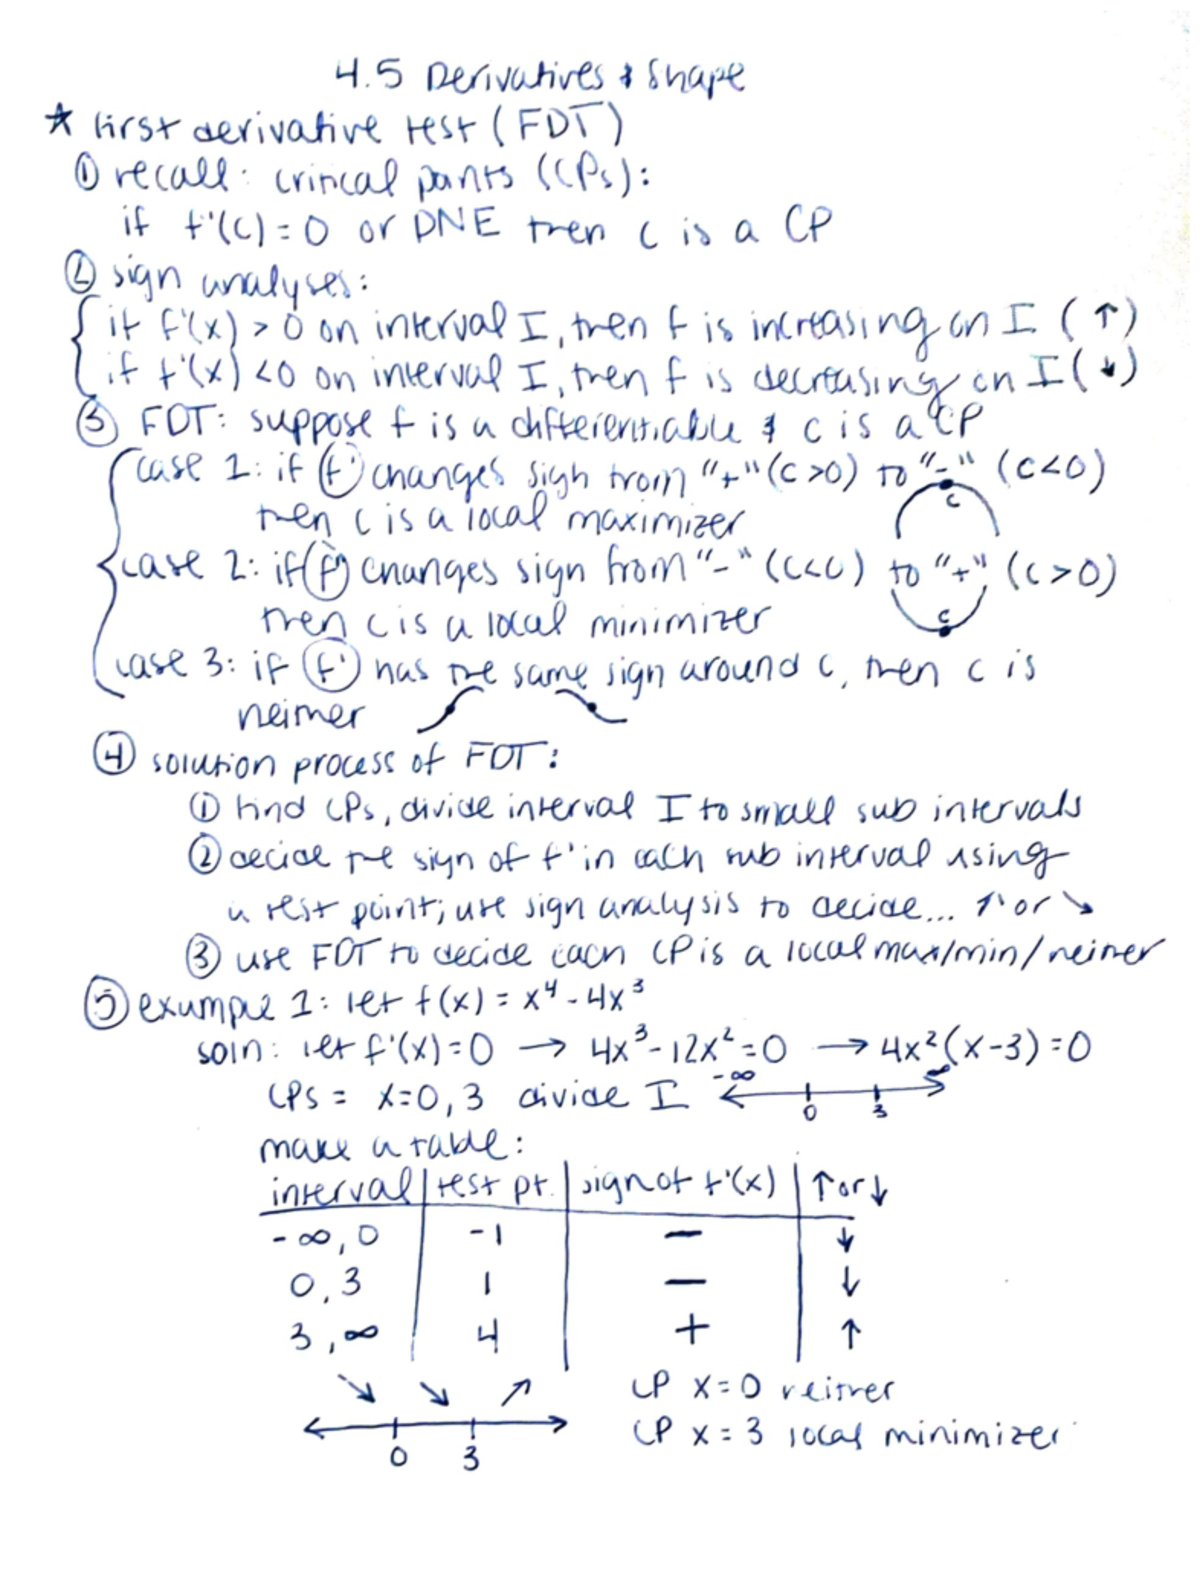 4.5 Derivatives & Shape
★ first derivative test (FDT)
① recall: critical points (CPs):
if f'(c) = 0 or DNE then c is a CP
② sign analyses:
if f'(x) > 0 on interval I, then f is increasing on I (↑)
if f'(x) < 0 on interval I, then f is decreasing on I (↓)
③ FDT: suppose f is a differentiable & c is a CP
case 1: if f' changes sign from "+" (c > 0) to "-" (c < 0)
then c is a local maximizer
c
case 2: if f' changes sign from "-" (c < 0) to "+" (c > 0)
then c is a local minimizer
c
case 3: if f' has the same sign around c, then c is
neither
④ solution process of FDT:
① find CPs, divide interval I to small sub intervals
② decide the sign of f' in each sub interval using
a test point; use sign analysis to decide... ↑ or ↘
③ use FDT to decide each CP is a local max/min/neither
⑤ example 1: let f(x) = x⁴ - 4x³
soln: let f'(x) = 0 → 4x³ - 12x² = 0 → 4x²(x-3) = 0
CPs = x = 0, 3 divide I -∞ 0 3 ∞
make a table:
interval | test pt. | sign of f'(x) | ↑ or ↓
-∞, 0 -1 — ↓
0, 3 1 — ↓
3, ∞ 4 + ↑
↘ ↘ ↗ CP x = 0 neither
0 3 CP x = 3 local minimizer